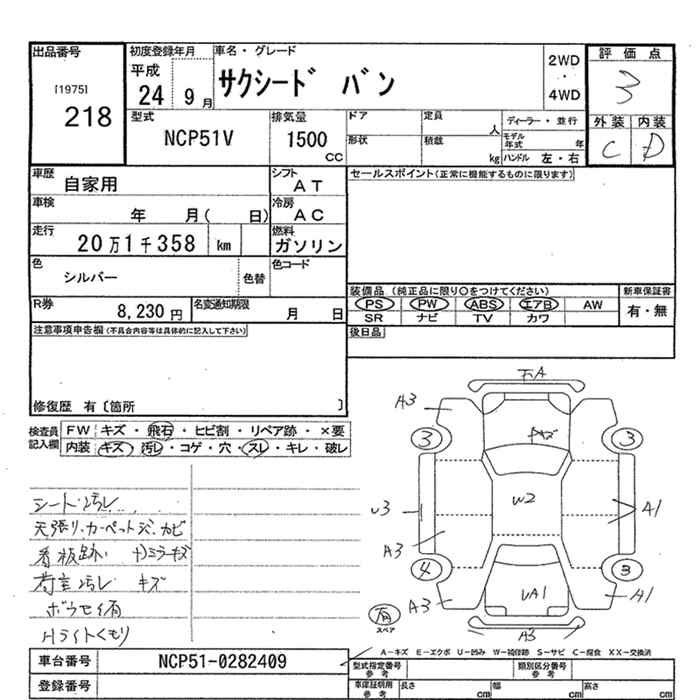 出品番号 初度登録年月 車名・グレード 評価点
[1975] 平成 サクシード バン 2WD ・ 4WD 3
218 24 9月
型式 排気量 ドア 定員 人 ディーラー・並行 外装 内装
NCP51V 1500 CC 形状 積載 kg モデル年式 年 ハンドル 左・右 C D
車歴 自家用 シフト AT セールスポイント(正常に機能するものに限ります)
車検 年 月( 日) 冷房 AC
走行 20万1千358 km 燃料 ガソリン
色 シルバー 色替 色コード
装備品 (純正品に限り○をつけてください) 新車保証書
R券 8,230円 名変通知期限 月 日 PS PW ABS エアB AW 有・無
SR ナビ TV カワ
注意事項申告欄(不具合内容等は具体的に記入して下さい) 後日品
修復歴 有〔箇所 〕
検査員記入欄 FW キズ・飛石・ヒビ割・リペア跡・×要
内装 キズ・汚レ・コゲ・穴・スレ・キレ・破レ
シート汚レ
天張り・カーペットシミ カビ
看板跡 キズ
荷室汚レ キズ
ボウセイ有
Hライトくもり
下A
A3
キズ
3 3
U3 W2 A1
A3
4 3
A3 UA1 A1
スペア A3
A-キズ E-エクボ U-凹み W-補修跡 S-サビ C-腐食 XX-交換済
車台番号 NCP51-0282409 型式指定番号 参考 類別区分番号 参考
登録番号 車庫証明用 参考 長さ cm 幅 cm 高さ cm